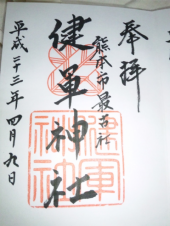 奉拝
熊本市最古社
健軍神社
健軍
神社
平成二十三年四月九日